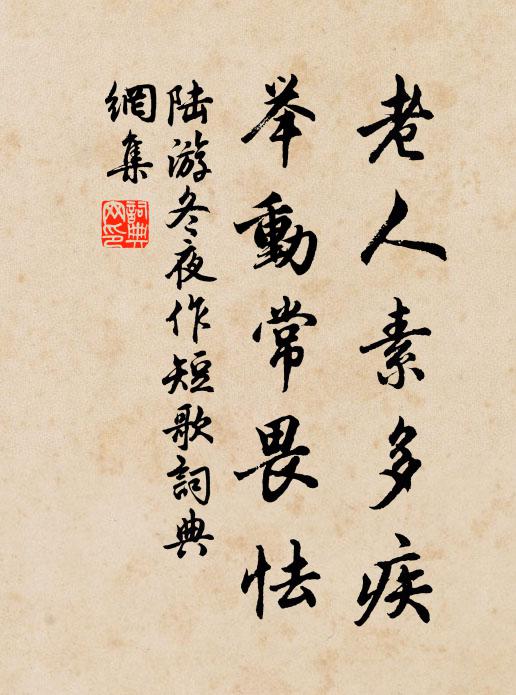 老人素多疾
举動常畏怯
陆游冬夜作短歌詞典
網集
詞典
网印